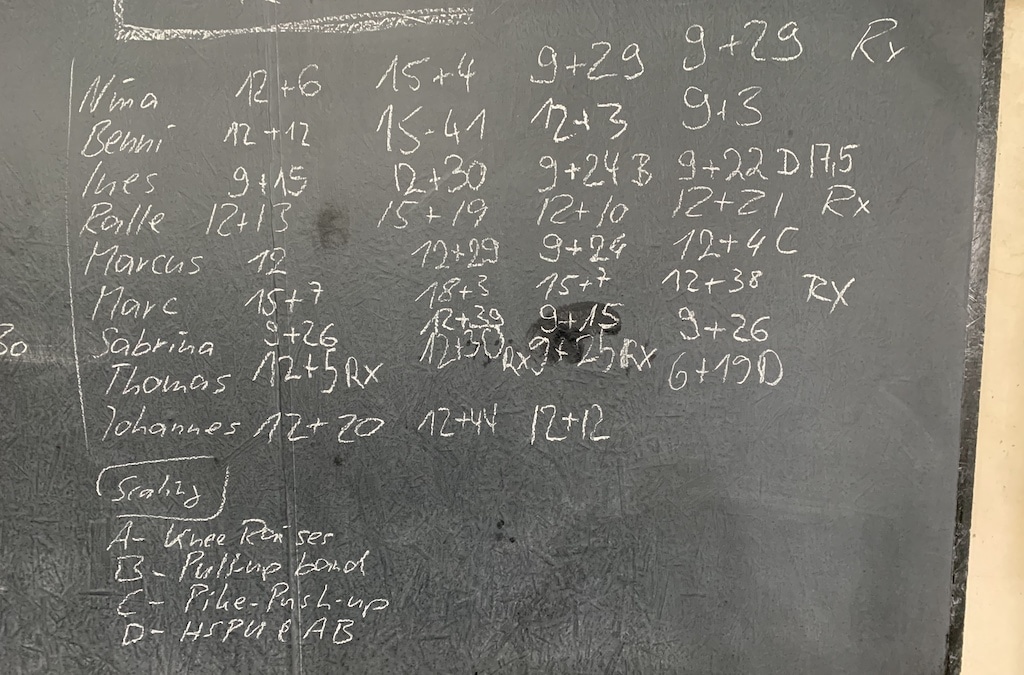 Nina 12+6 15+4 9+29 9+29 Rx
Benni 12+12 15-41 12+3 9+3
Ines 9+15 12+30 9+24 B 9+22 D 17,5
Ralle 12+13 15+19 12+10 12+21 Rx
Marcus 12 12+29 9+24 12+4 C
Marc 15+7 18+3 15+7 12+38 RX
Sabrina 9+26 12+39 9+15 9+26
Thomas 12+5 RX 12+30 RX 9+25 RX 6+19 D
Johannes 12+20 12+44 12+12
30
Scaling
A- Knee Raises
B- Pull-up band
C- Pike-Push-up
D- HSPU & AB